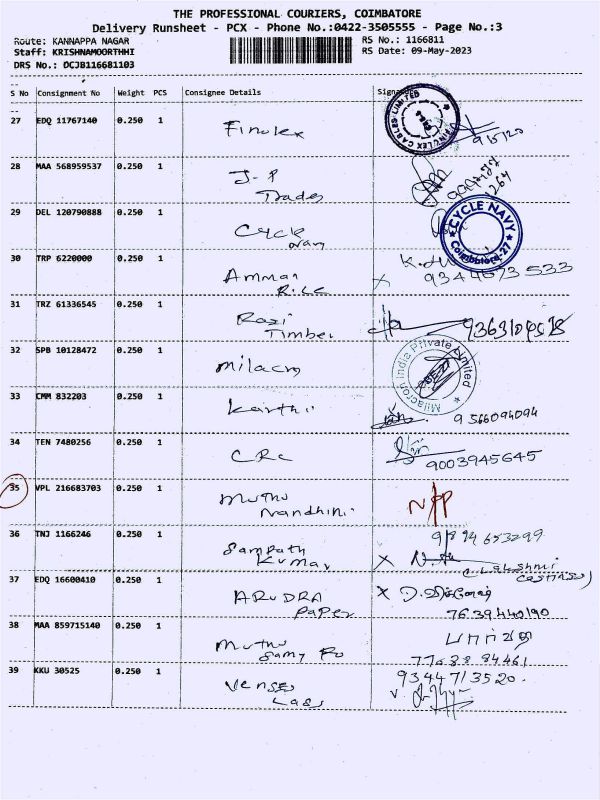 THE PROFESSIONAL COURIERS, COIMBATORE
Delivery Runsheet - PCX - Phone No.:0422-3505555 - Page No.:3
Route: KANNAPPA NAGAR
RS No.: 1166811
Staff: KRISHNAMOORTHHI
RS Date: 09-May-2023
DRS No.: DCJB116681103
S No Consignment No Weight PCS Consignee Details
27 EDQ 11767140 0.250 1 Finolex
FINOLEX CABLES LIMITED
28 MAA 568959537 0.250 1 J-P
Trades
29 DEL 120790888 0.250 1 Cycle
Navy
CYCLE NAVY
Coimbatore-27
30 TRP 6220000 0.250 1 Amman
Rice
9344573533
31 TRZ 61336545 0.250 1 Raji
Timber
32 SPB 10128472 0.250 1 Milacro
Milacron India Private Limited
33 CMM 832203 0.250 1 Karthi
9566094094
34 TEN 7480256 0.250 1 CRC
9003945645
35 VPL 216683703 0.250 1 Muthu
Nandhini
36 TNJ 1166246 0.250 1 Sampath
Kumar
9894653299
(Lakshmi
Castings)
37 EDQ 16600410 0.250 1 ARUDRA
Paper
7639440190
38 MAA 859715140 0.250 1 Muthu
Samy
39 KKU 30525 0.250 1
9344713520